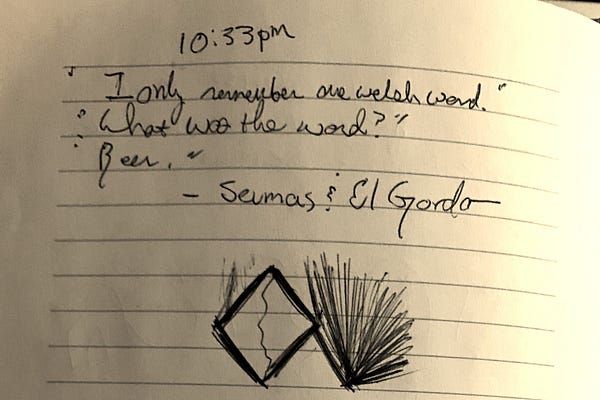 10:33pm
"I only remember one welsh word."
"What was the word?"
"Beer."
- Seumas & El Gordo